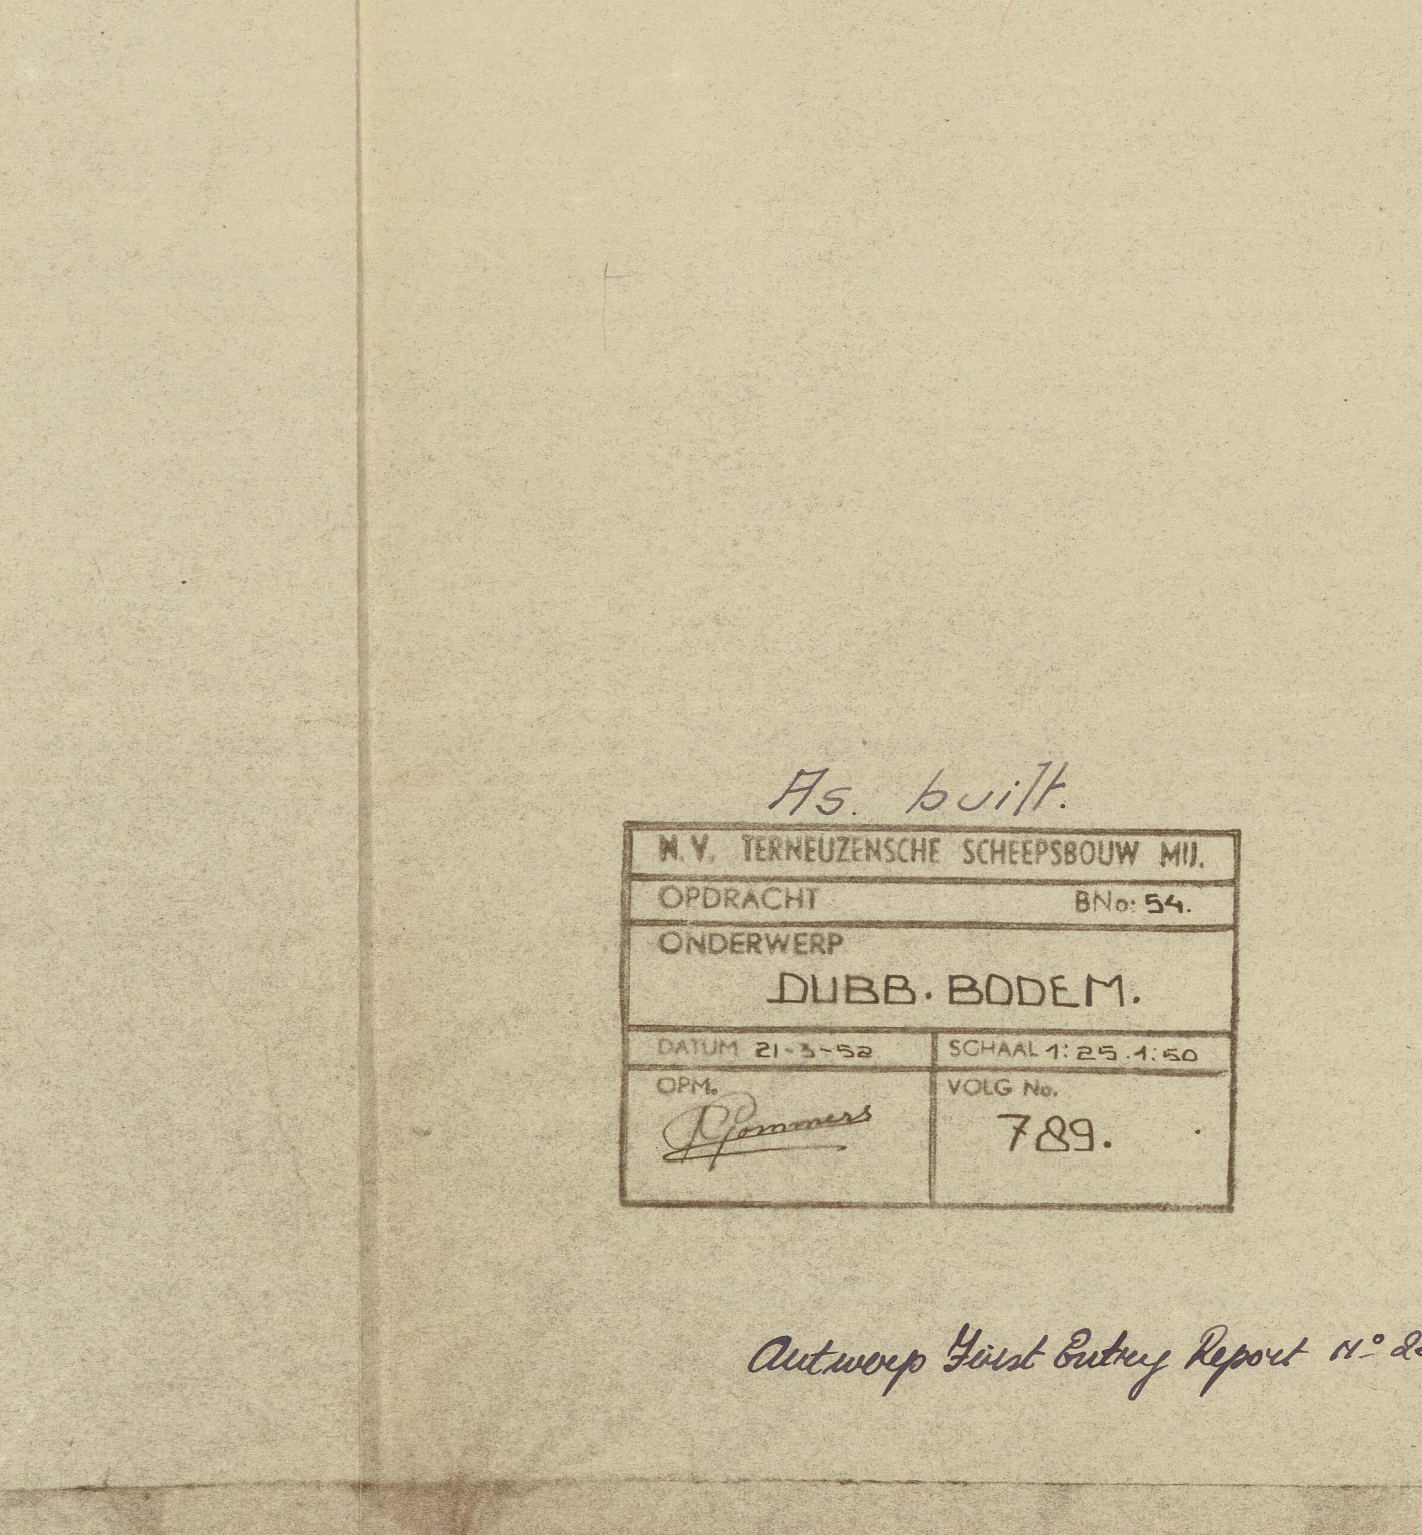 As. built.
N.V. TERNEUZENSCHE SCHEEPSBOUW MIJ.
OPDRACHT BNo: 54.
ONDERWERP
DUBB. BODEM.
DATUM 21-3-52 SCHAAL 1:25.1:50
OPM. VOLG No.
Pommers 789.
Antwerp First Entry Report No